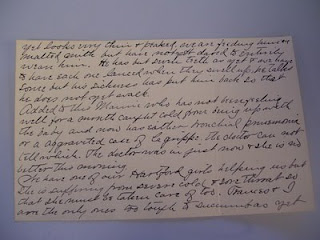 yet looks very thin & peaked, we are feeding him on
malted milk but have not yet dared to entirely
wean him. He has but seven teeth as yet & we have
to have each one lanced when they swell up, he talks
some but his sickness has put him back so that
he does not yet walk.
Added to this Mamie who has not been feeling
well for a month caught cold from being up with
the baby and now has either bronchial pneumonia
or a aggravated case of La grippe. the doctor can not
tell which. The doctor was in just now & she is no
better this morning.
We have one of our Hartford girls helping us but
she is suffering from severe cold & sore throat so
that she must be taken care of too. & I
are the only ones too tough to succumb as yet